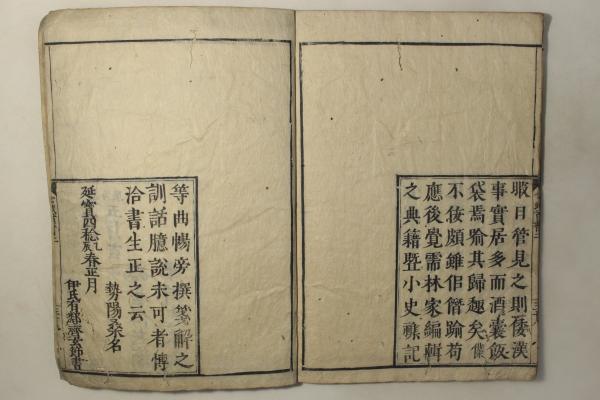 暇日管見之則倭漢
事實居多而酒囊飯
袋焉喩其歸趣矣僕
不佞頗雖佀僭踰苟
應後覺需林家編輯
之典籍曁小史襍記
等曲暢旁撰箋解之
訓詁臆說未可者博
洽書生正之云
勢陽桑名
延寶四稔 春正月
伊氏有 齋 書